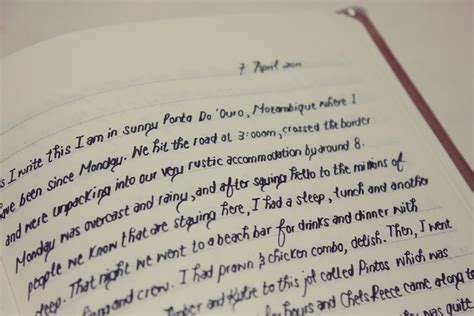 7 April 2011
s I write this I am in sunny Ponta Do 'Ouro, Mozambique where I
ve been since Monday. We hit the road at 3:00am, crossed the border
and were unpacking into our very rustic accommodation by around 8.
Monday was overcast and rainy, and after saying hello to the millions of
people we know that are staying here, I had a sleep, lunch and another
sleep. That night we went to a beach bar for drinks and dinner with
and crew. I had prawn & chicken combo, delish. Then, I went
and Katie to this jol called Pintos which was
hours and Chels Reece came along to
was quite